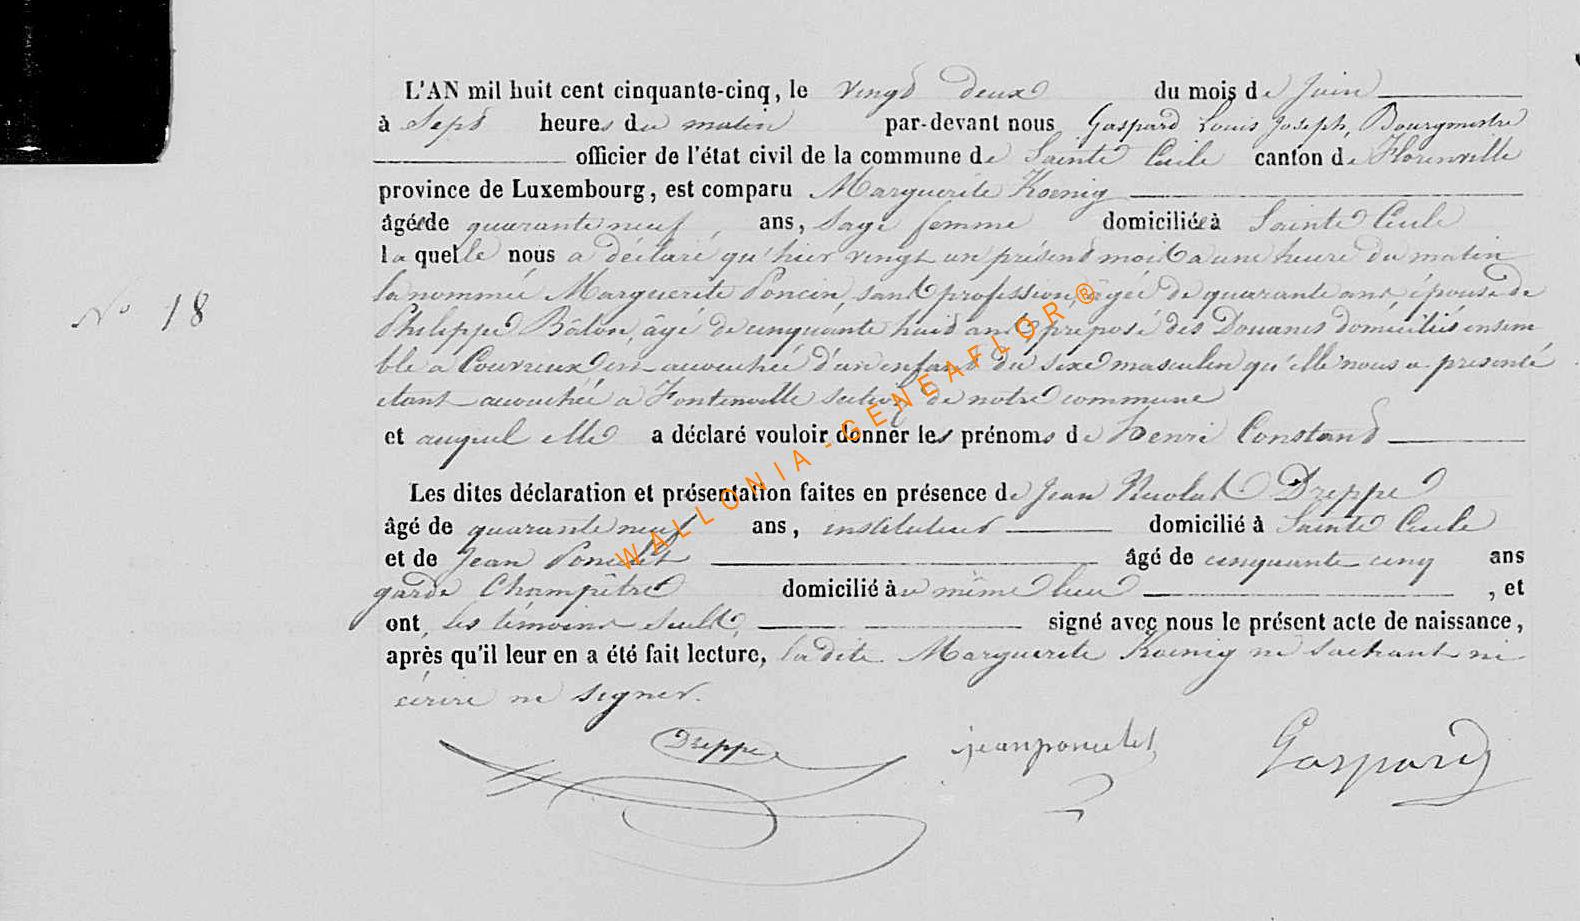 L'AN mil huit cent cinquante-cinq, le vingt deux du mois de Juin
à Sept heures du matin par-devant nous Gaspard Louis Joseph, Bourgmestre
officier de l'état civil de la commune de Sainte Cécile canton de Florenville
province de Luxembourg, est comparu Marguerite Koenig
âgée de quarante neuf, ans, Sage femme domiciliée à Sainte Cécile
laquelle nous a déclaré qu'hier vingt un présent mois à une heure du matin
la nommée Marguerite Poncin, sans profession, âgée de quarante ans, épouse de
Philippe Bâlon, âgé de cinquante huit ans, préposé des Douanes domiciliés ensem
N° 18
ble à Couvreux est accouchée d'un enfant du sexe masculin qu'elle nous a présenté
étant accouchée à Fontenoille section de notre commune
et auquel elle a déclaré vouloir donner les prénoms de Henri Constand
Les dites déclaration et présentation faites en présence de Jean Nicolas Dreppe
âgé de quarante neuf ans, instituteur domicilié à Sainte Cécile
et de Jean Poncelet âgé de cinquante cinq ans
garde Champêtre domicilié au même lieu, et
ont, les témoins seuls, signé avec nous le présent acte de naissance,
après qu'il leur en a été fait lecture, la dite Marguerite Koenig ne sachant ni
écrire ni signer.
Dreppe jean poncelet Gaspard
WALLONIA-GENEAFLOR®